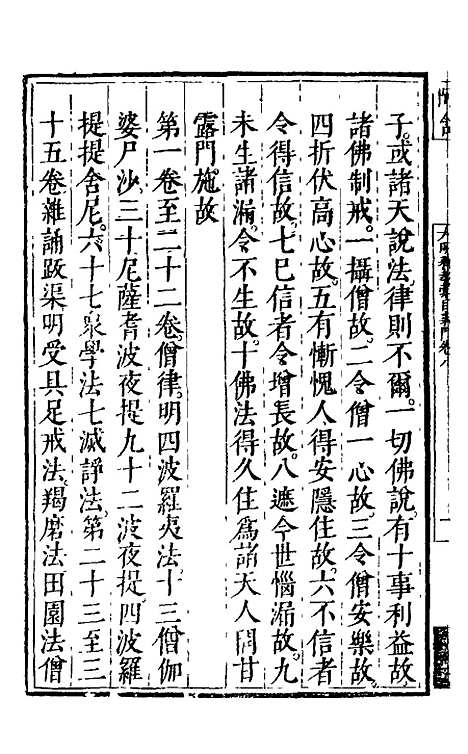 子。或諸天說法。律則不爾。一切佛說。有十事利益故。
諸佛制戒。一攝僧故。二令僧一心故。三令僧安樂故。
四折伏高心故。五有慚愧人得安隱住故。六不信者
令得信故。七巳信者令增長故。八遮今世惱漏故。九
未生諸漏。令不生故。十佛法得久住。為諸天人開甘
露門施故
第一卷至二十二卷。僧律。明四波羅夷法。十三僧伽
婆尸沙。三十尼薩耆波夜提。九十二波夜提。四波羅
提提舍尼。六十七眾學法。七滅諍法。第二十三至三
十五卷。雜誦跋渠。明受具足戒法。羯磨法。田園法。僧